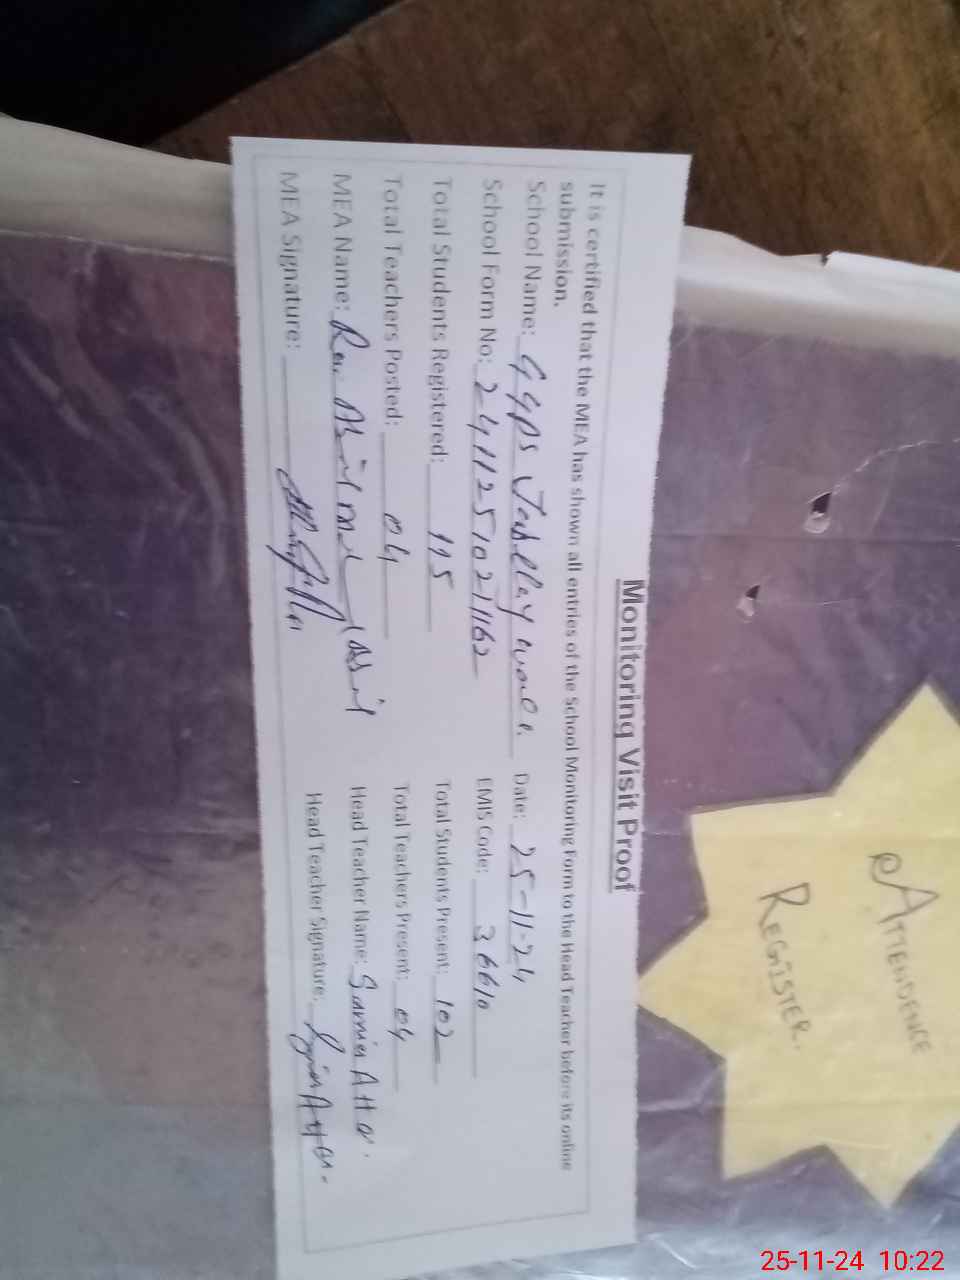 Monitoring Visit Proof
It is certified that the MEA has shown all entries of the School Monitoring Form to the Head Teacher before its online
submission.
School Name: GGPS Date: 25-11-24
School Form No: 2411251021162 EMIS Code: 36610
Total Students Registered: 115 Total Students Present: 102
Total Teachers Posted: 04 Total Teachers Present: 04
MEA Name: Head Teacher Name: Samia Atta
MEA Signature: Head Teacher Signature:
ATTENDENCE
REGISTER.
25-11-24 10:22